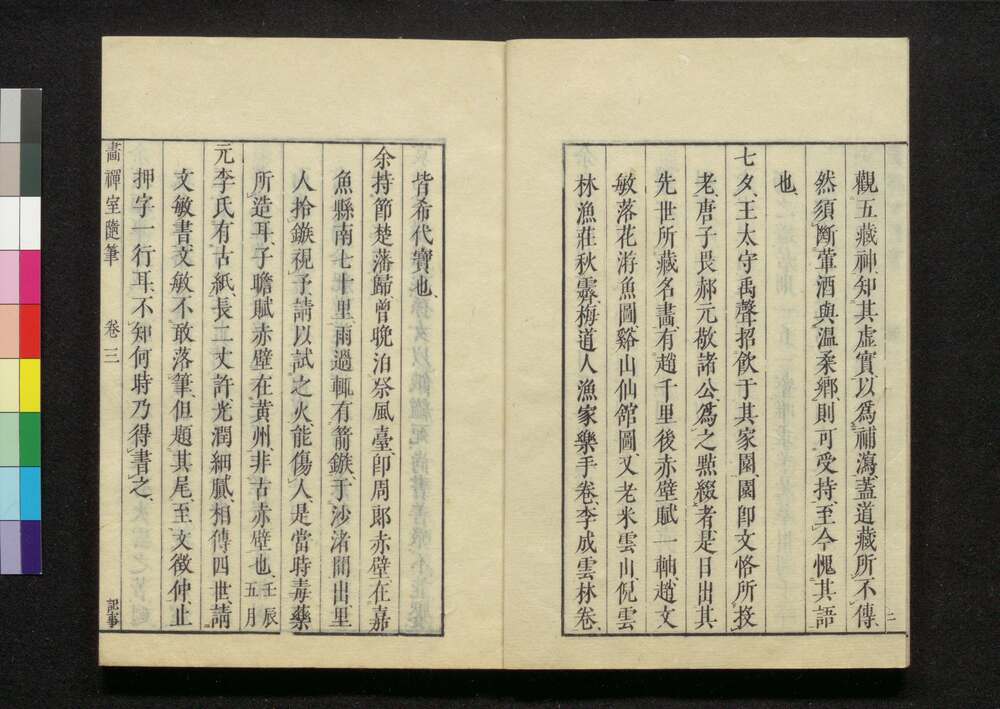 觀五藏神知其虛實以爲補瀉蓋道藏所不傳
然須斷葷酒與溫柔鄉則可受持至今愧其語
也
七夕王太守禹聲招飲于其家園園卽文恪所投
老唐子畏郝元敬諸公爲之點綴者是日出其
先世所藏名畫有趙千里後赤壁賦一軸趙文
敏落花游魚圖谿山仙館圖又老米雲山倪雲
林漁莊秋霽梅道人漁家樂手卷李成雲林卷
皆希代寶也
余持節楚藩歸曾晚泊祭風臺卽周郞赤壁在嘉
魚縣南七十里雨過輒有箭鏃于沙渚間出里
人拾鏃視予請以試之火能傷人是當時毒藥
所造耳子瞻賦赤壁在黃州非古赤壁也壬辰五月
元李氏有古紙長二丈許光潤細膩相傳四世請
文敏書文敏不敢落筆但題其尾至文徵仲止
押字一行耳不知何時乃得書之
畵禪室隨筆 卷三 記事
二